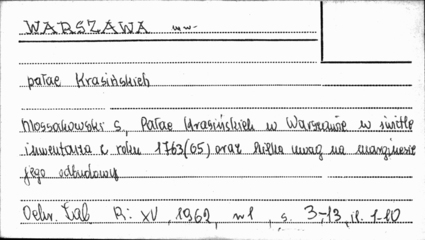 WARSZAWA
pałac Krasińskich
Mossakowski S, Pałac Krasińskich w Warszawie w świetle
inwentarza z roku 1763(65) oraz kilka uwag na marginesie
jego odbudowy
Ochr. Zab R: XV, 1962, nr 1, s. 3-13, il. 1-10